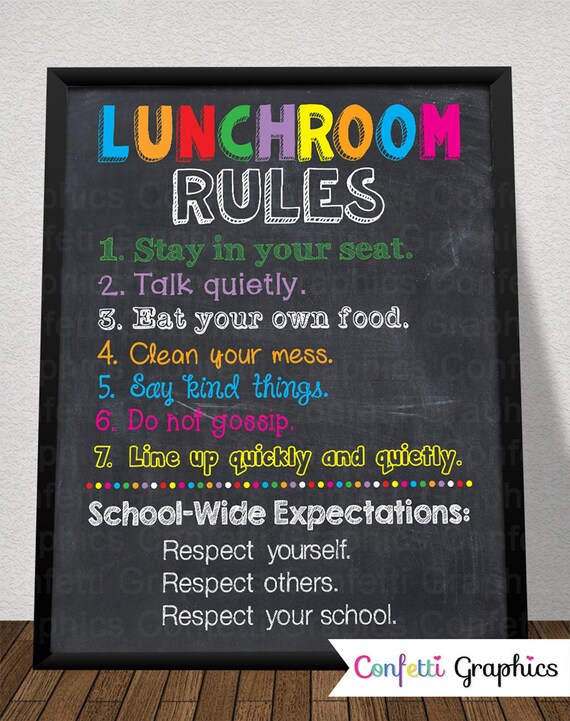 LUNCHROOM
RULES
1. Stay in your seat.
2. Talk quietly.
3. Eat your own food.
4. Clean your mess.
5. Say kind things.
6. Do not gossip.
7. Line up quickly and quietly.
School-Wide Expectations:
Respect yourself.
Respect others.
Respect your school.
Confetti Graphics